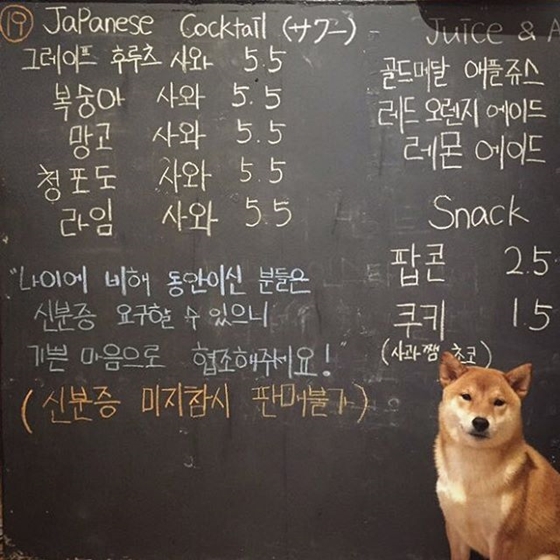 19 Japanese Cocktail (サワー)
그레이프 후루츠 사와 5.5
복숭아 사와 5.5
망고 사와 5.5
청포도 사와 5.5
라임 사와 5.5
"나이에 비해 동안이신 분들은
신분증 요구할 수 있으니
기쁜 마음으로 협조해주세요!"
(신분증 미지참시 판매불가)
Juice & A
골드메달 애플쥬스
레드 오렌지 에이드
레몬 에이드
Snack
팝콘 2.5
쿠키 1.5
(사과쨈, 초코)